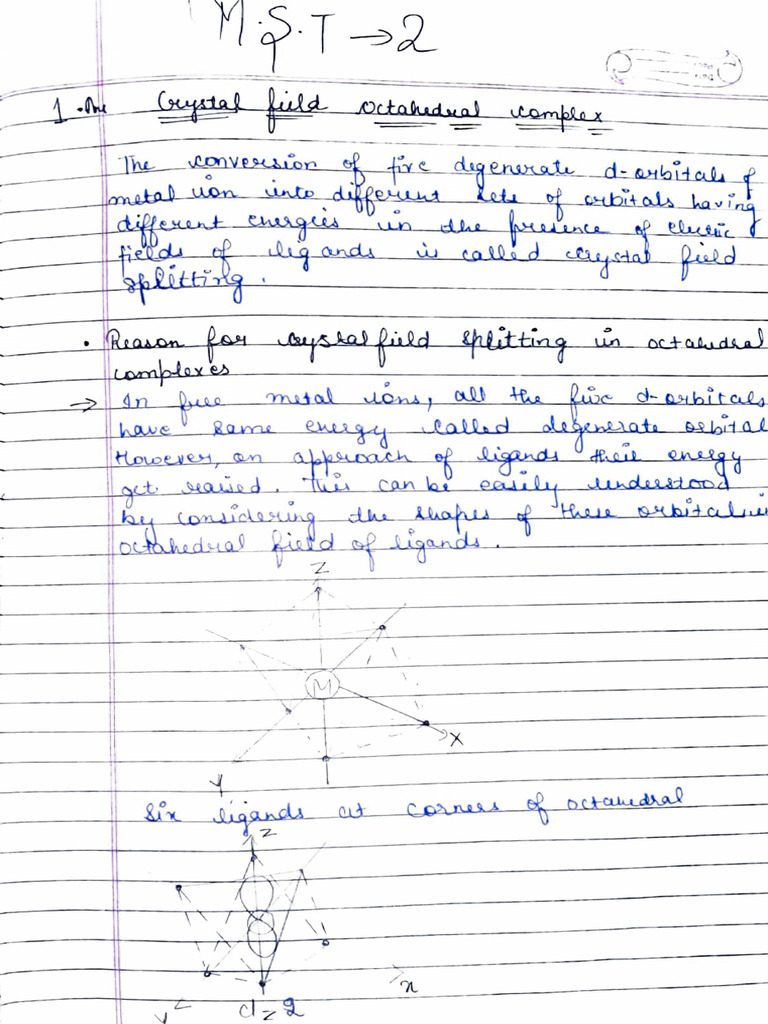 M.S.T → 2
1. Ans Crystal field octahedral complex
The conversion of five degenerate d-orbitals of
metal ion into different sets of orbitals having
different energies in the presence of electric
fields of ligands is called crystal field
splitting.
• Reason for crystal field splitting in octahedral
complexes
→ In free metal ions, all the five d-orbitals
have same energy called degenerate orbital
However, on approach of ligands their energy
get raised. This can be easily understood
by considering the shapes of these orbitals in
octahedral field of ligands.
Z
M
X
Y
Six ligands at corners of octahedral
Z
x
Y
dz2